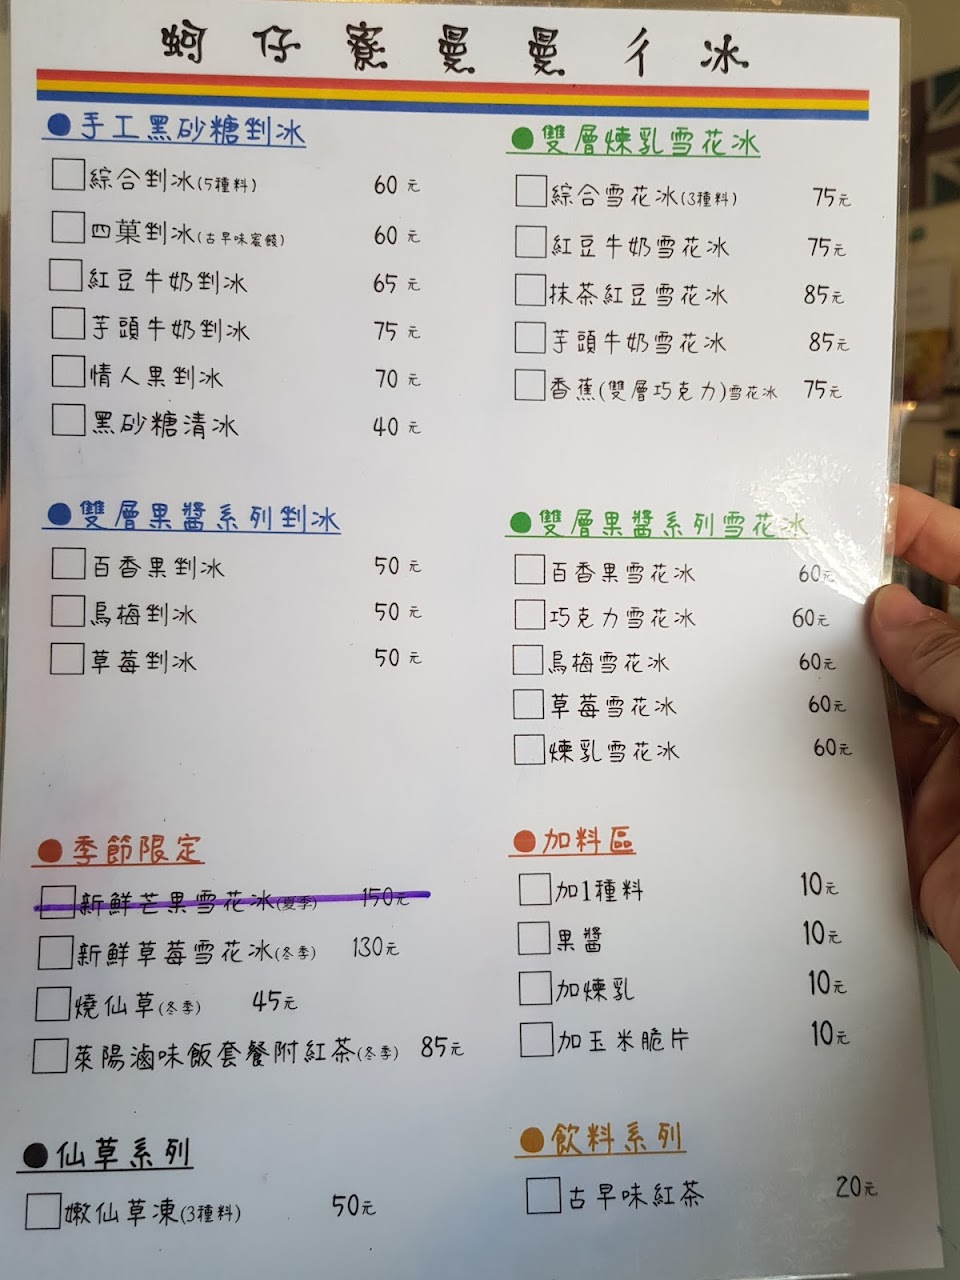 蚵仔寮曼曼ㄔ冰
手工黑砂糖剉冰
綜合剉冰(5種料) 60元
四菓剉冰(古早味蜜餞) 60元
紅豆牛奶剉冰 65元
芋頭牛奶剉冰 75元
情人果剉冰 70元
黑砂糖清冰 40元
雙層煉乳雪花冰
綜合雪花冰(3種料) 75元
紅豆牛奶雪花冰 75元
抹茶紅豆雪花冰 85元
芋頭牛奶雪花冰 85元
香蕉(雙層巧克力)雪花冰 75元
雙層果醬系列剉冰
百香果剉冰 50元
烏梅剉冰 50元
草莓剉冰 50元
雙層果醬系列雪花冰
百香果雪花冰 60元
巧克力雪花冰 60元
烏梅雪花冰 60元
草莓雪花冰 60元
煉乳雪花冰 60元
季節限定
新鮮芒果雪花冰(夏季) 150元
新鮮草莓雪花冰(冬季) 130元
燒仙草(冬季) 45元
萊陽滷味飯套餐附紅茶(冬季) 85元
加料區
加1種料 10元
果醬 10元
加煉乳 10元
加玉米脆片 10元
仙草系列
嫩仙草凍(3種料) 50元
飲料系列
古早味紅茶 20元